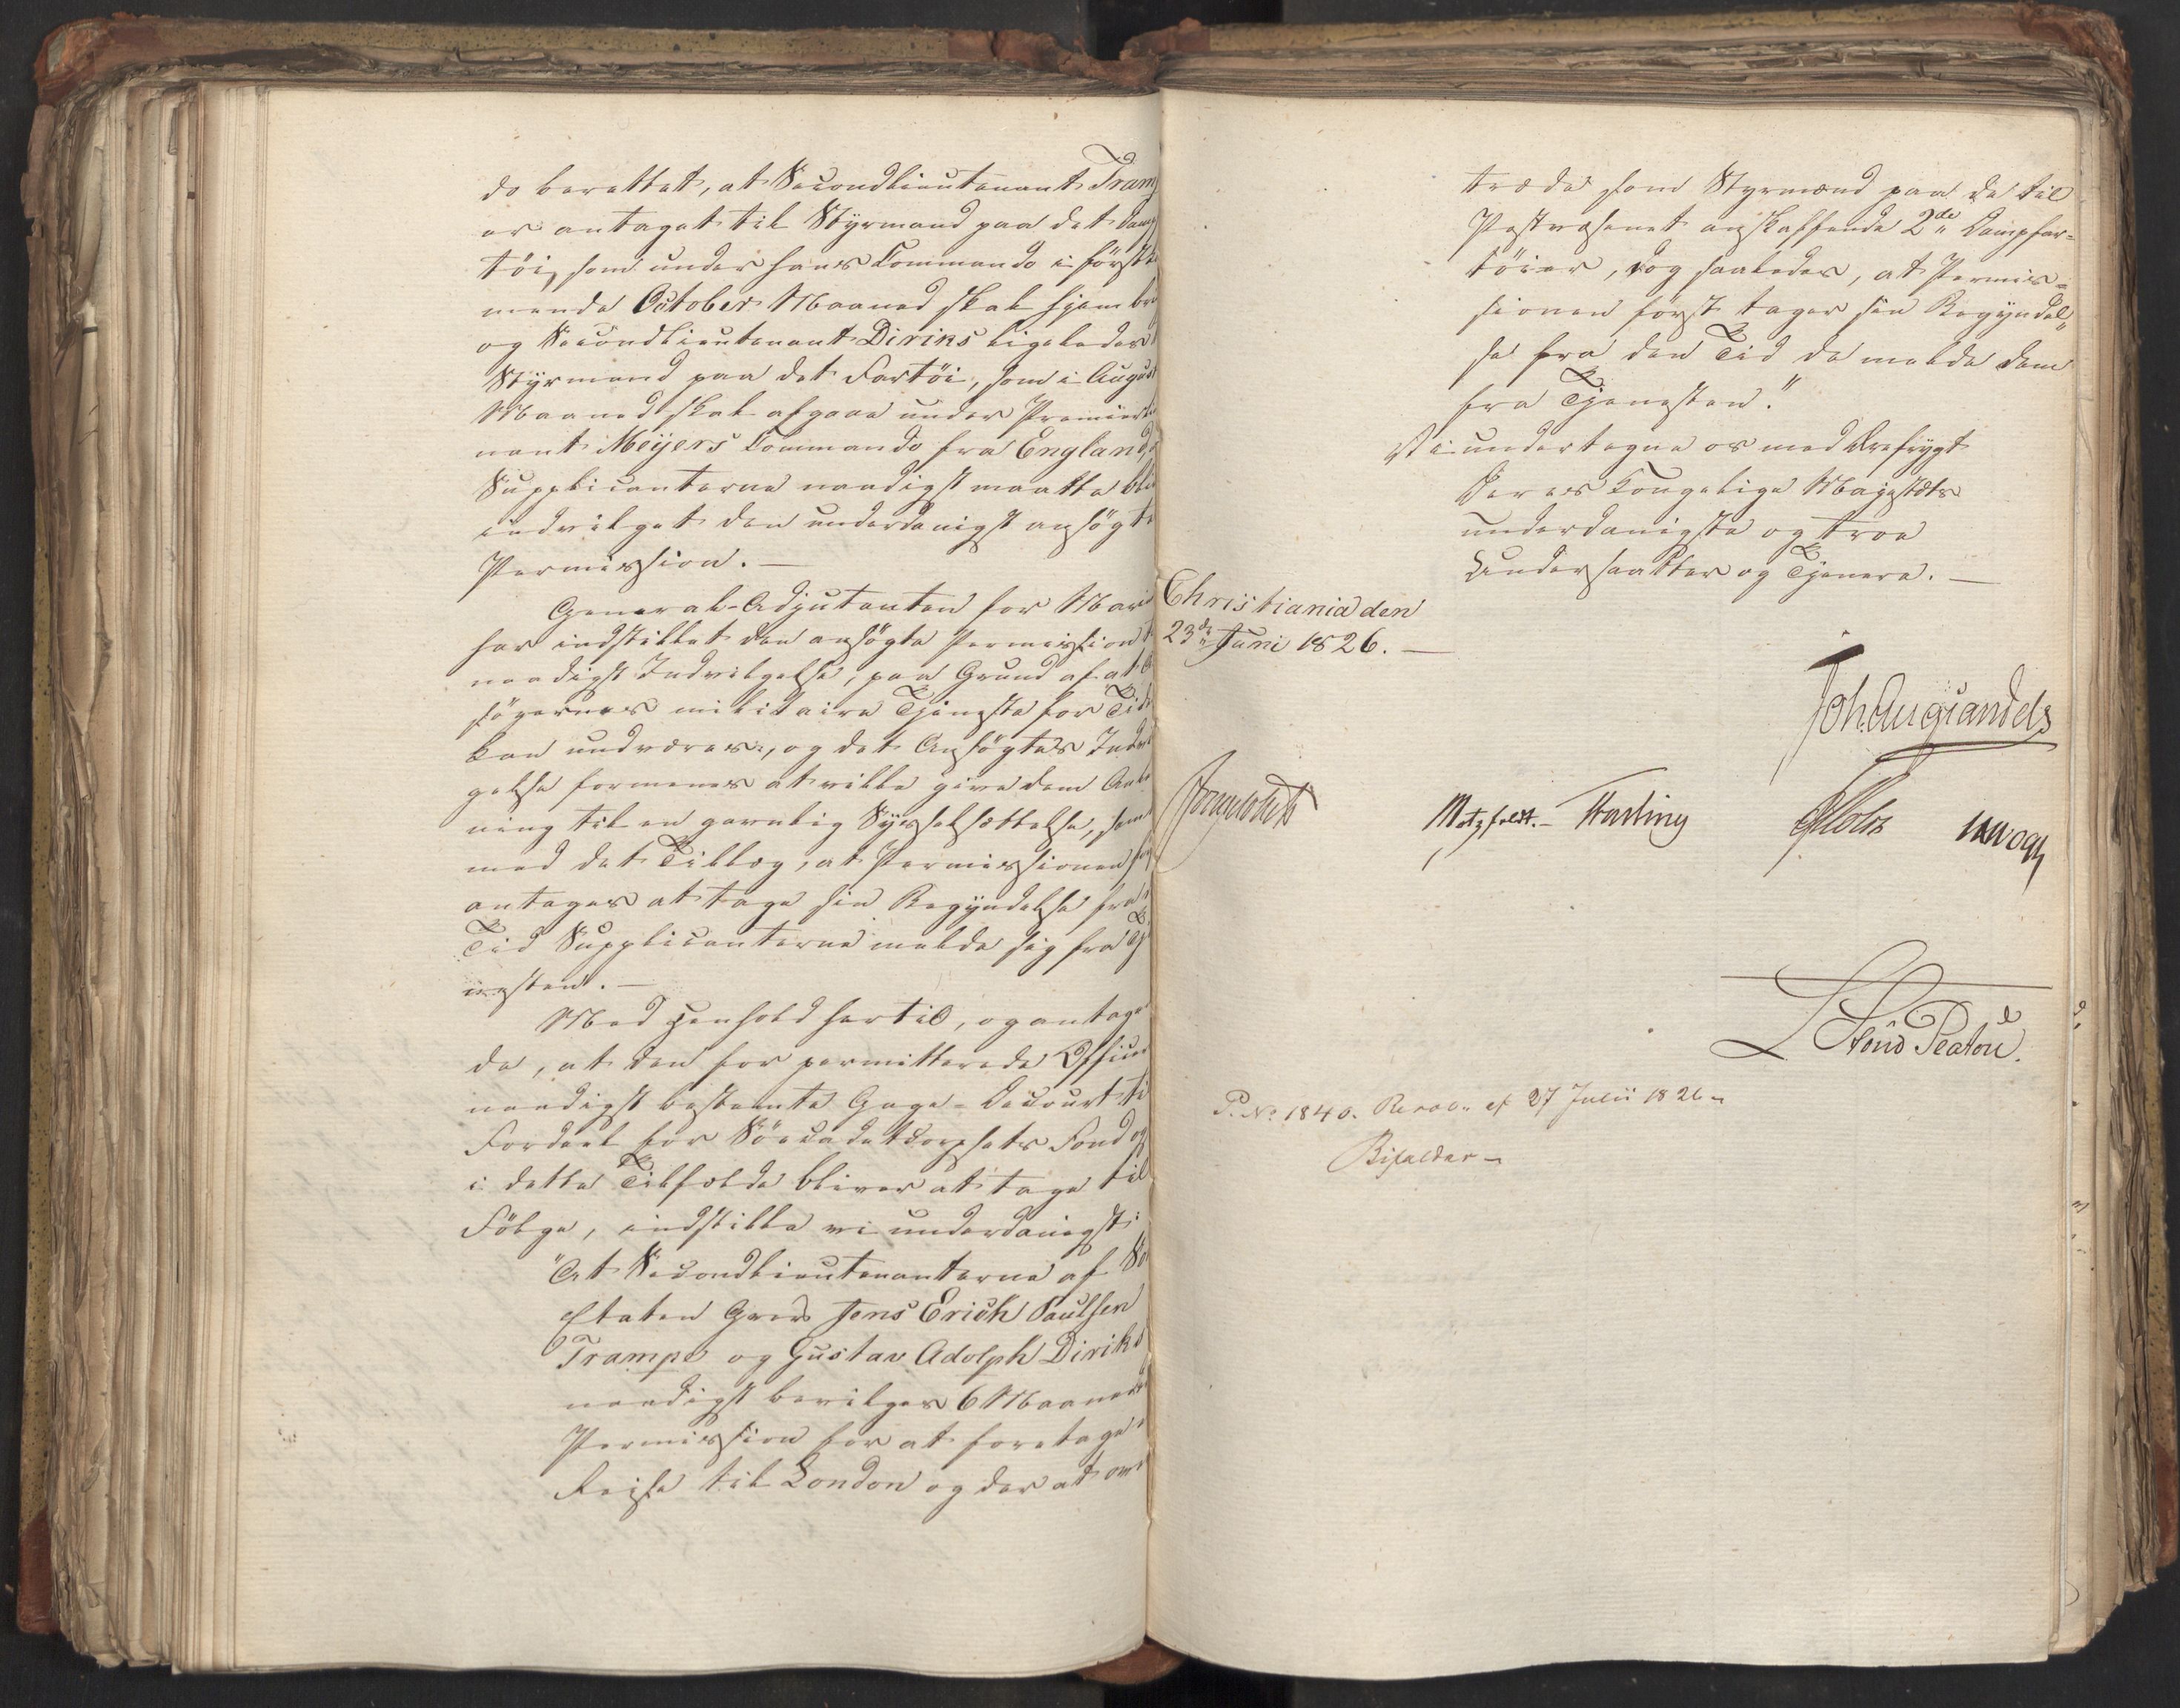 do berettet, at Secondlieutenant Tram
er antaget til Styrmand paa det Damp
töi, som under hans Commando i förstk
mende October Maaned skal hjembr
og Secondlieutenant Diriks ligeledes
Styrmand paa det Fartöi, som i August
Maaned skal afgaae under Premierli
nant Meijers Commando fra England,
Supplicanterne naadigst maatte bli
indvilget den underdanigst ansögte
Permission. —
General-Adjutanten for Mari
har indstillet den ansögte Permission t
naadigst Indvilgelse, paa Grund af at A
sögernes militaire Tjeneste for Tide
kan undværes, og det Ansögtes Indvil
gelse formenes at ville give dem Anle
ning til en gavnlig Sysselsættelse, samt
med det Tillæg, at Permissionen
antages at tage sin Begyndelse fra
Tid Supplicanterne melde sig fra Tj
nesten. —
Med Henhold hertil, og antage
de, at den for permitterede Officie
naadigst bestemte Gage-Decourt ti
Fordeel for Söecadetcorpsets Fond og
i dette Tilfælde bliver at tage til
Fölge, indstille vi underdanigst:
"At Secondlieutenanterne af Sö
Etaten Grev Jens Erich Paulsen
Trampe og Gustav Adolph Diriks
naadigst bevilges 6 Maaneders
Permission for at foretage
Reise til London og der at om
træde som Styrmænd paa de til
Postvæsenet anskaffende 2de Dampfar=
töier, dog saaledes, at Permis=
sionen först tager sin Begyndel
se fra den Tid de melde dem
fra Tjenesten."
Vi undertegne os med Ærefrygt
Deres Kongelige Majestæts
underdanigste og troe
Undersaatter og Tjenere. —
Christiania den
23de Juni 1826. —
Joh. Aug Sandels
Motzfeldt. Fasting Holst
L Stoud Platou.
P. No 1840. Resol. af 27 Julii 1826
Bifaldes